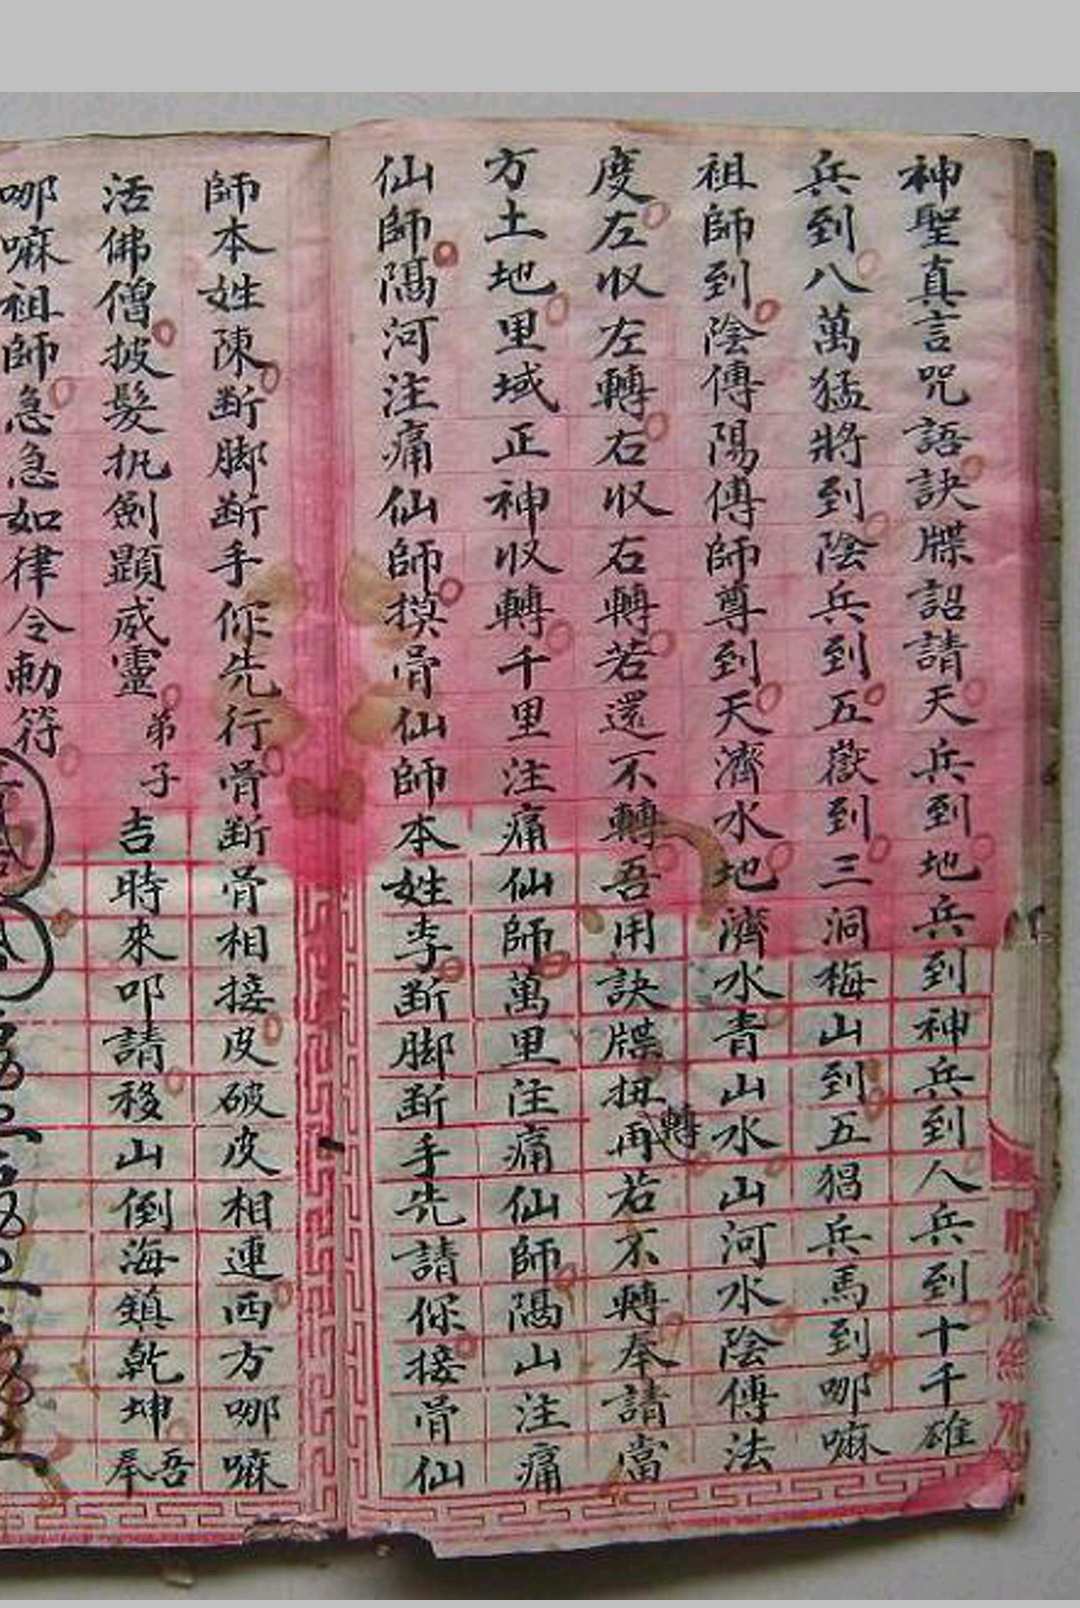 神聖真言咒語訣牒詔請天兵到地兵到神兵到人兵到十千雄
兵到八萬猛將到陰兵到五嶽到三洞梅山到五猖兵馬到哪嘛
祖師到陰傅陽傅師尊到天濟水地濟水青山水山河水陰傅法
度左收左轉右收右轉若還不轉吾用訣牒扭再轉若不轉奉請當
方土地里域正神收轉千里注痛仙師萬里注痛仙師隔山注痛
仙師隔河注痛仙師摸骨仙師本姓李断脚断手先請你接骨仙
師本姓陳断脚断手你先行骨断骨相接皮破皮相連西方哪嘛
活佛僧披髮执劍顕威靈弟子吉時來叩請移山倒海鎮乾坤吾奉
哪嘛祖師急急如律令勅符